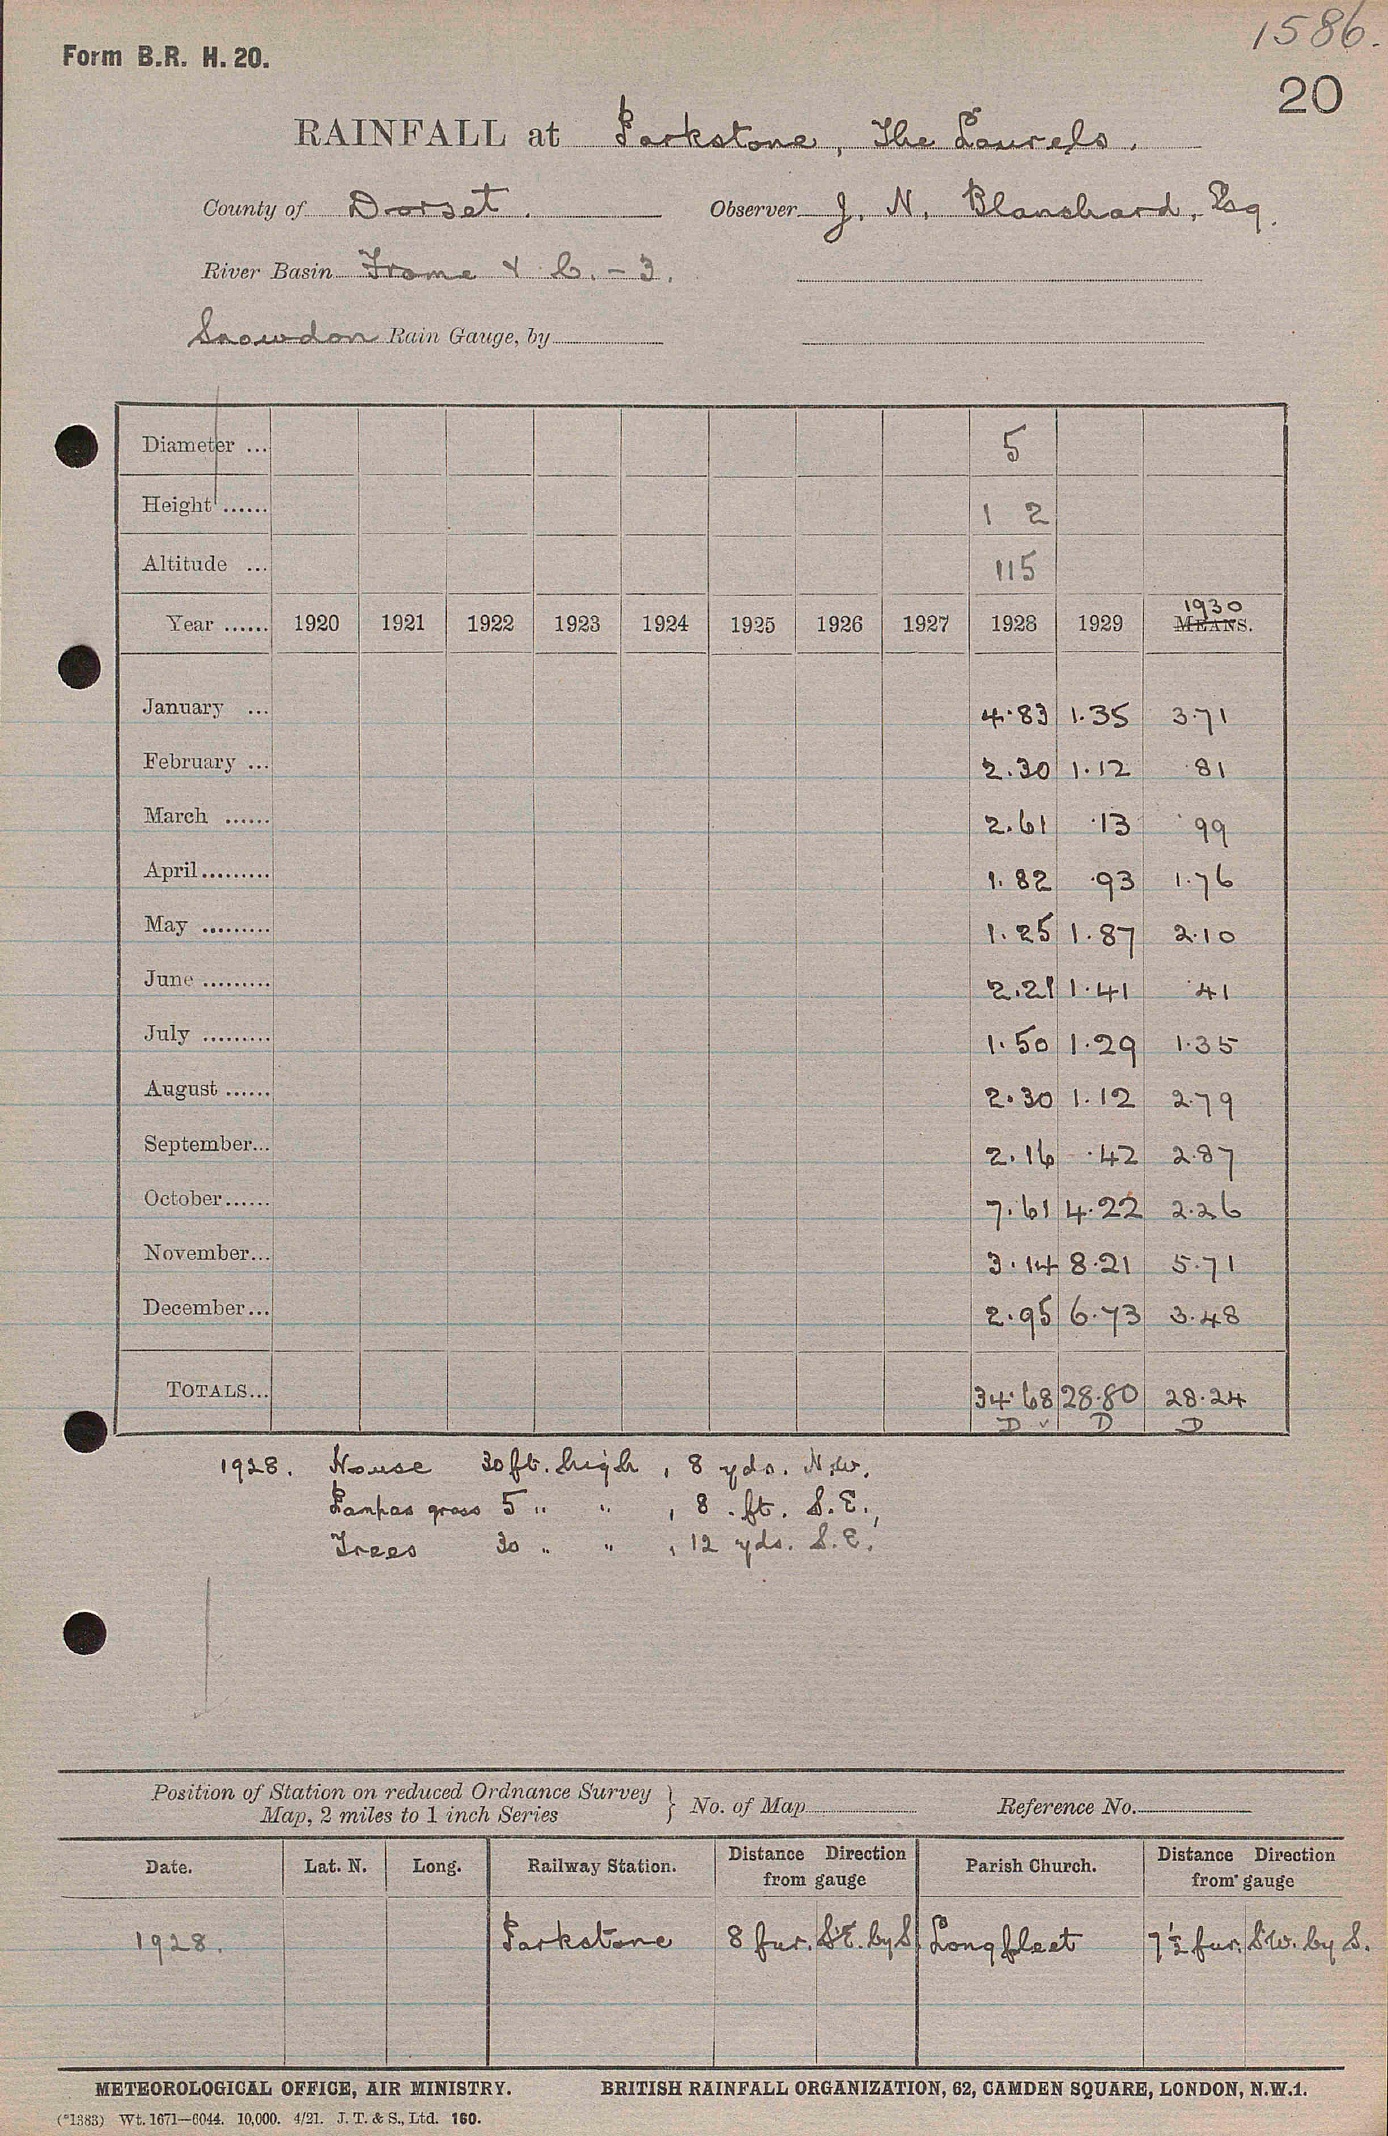 1586.
Form B.R. H. 20.
20
RAINFALL at Parkstone, The Laurels.
County of Dorset. Observer J. N. Blanchard, Esq.
River Basin Frome & C. - 3.
Snowdon Rain Gauge, by
Diameter ... 5
Height ...... 1 2
Altitude ... 115
Year ...... 1920 1921 1922 1923 1924 1925 1926 1927 1928 1929 1930 MEANS.
January ... 4.83 1.35 3.71
February ... 2.30 1.12 .81
March ...... 2.61 .13 .99
April ......... 1.82 .93 1.76
May ......... 1.25 1.87 2.10
June ......... 2.21 1.41 .41
July ......... 1.50 1.29 1.35
August ...... 2.30 1.12 2.79
September... 2.16 .42 2.87
October...... 7.61 4.22 2.26
November... 3.14 8.21 5.71
December... 2.95 6.73 3.48
TOTALS... 34.68 28.80 28.24
D ✓ D D
1928. House 30 ft. high, 8 yds. N.W.
Pampas grass 5 " ", 8 ft. S.E.,
Trees 30 " ", 12 yds. S.E.
Position of Station on reduced Ordnance Survey Map, 2 miles to 1 inch Series } No. of Map Reference No.
Date. Lat. N. Long. Railway Station. Distance from gauge Direction Parish Church. Distance from gauge Direction
1928. Parkstone 8 fur. SE. by S. Longfleet 7½ fur. SW. by S.
METEOROLOGICAL OFFICE, AIR MINISTRY. BRITISH RAINFALL ORGANIZATION, 62, CAMDEN SQUARE, LONDON, N.W.1.
(*1383) Wt. 1671—6044. 10,000. 4/21. J. T. & S., Ltd. 160.